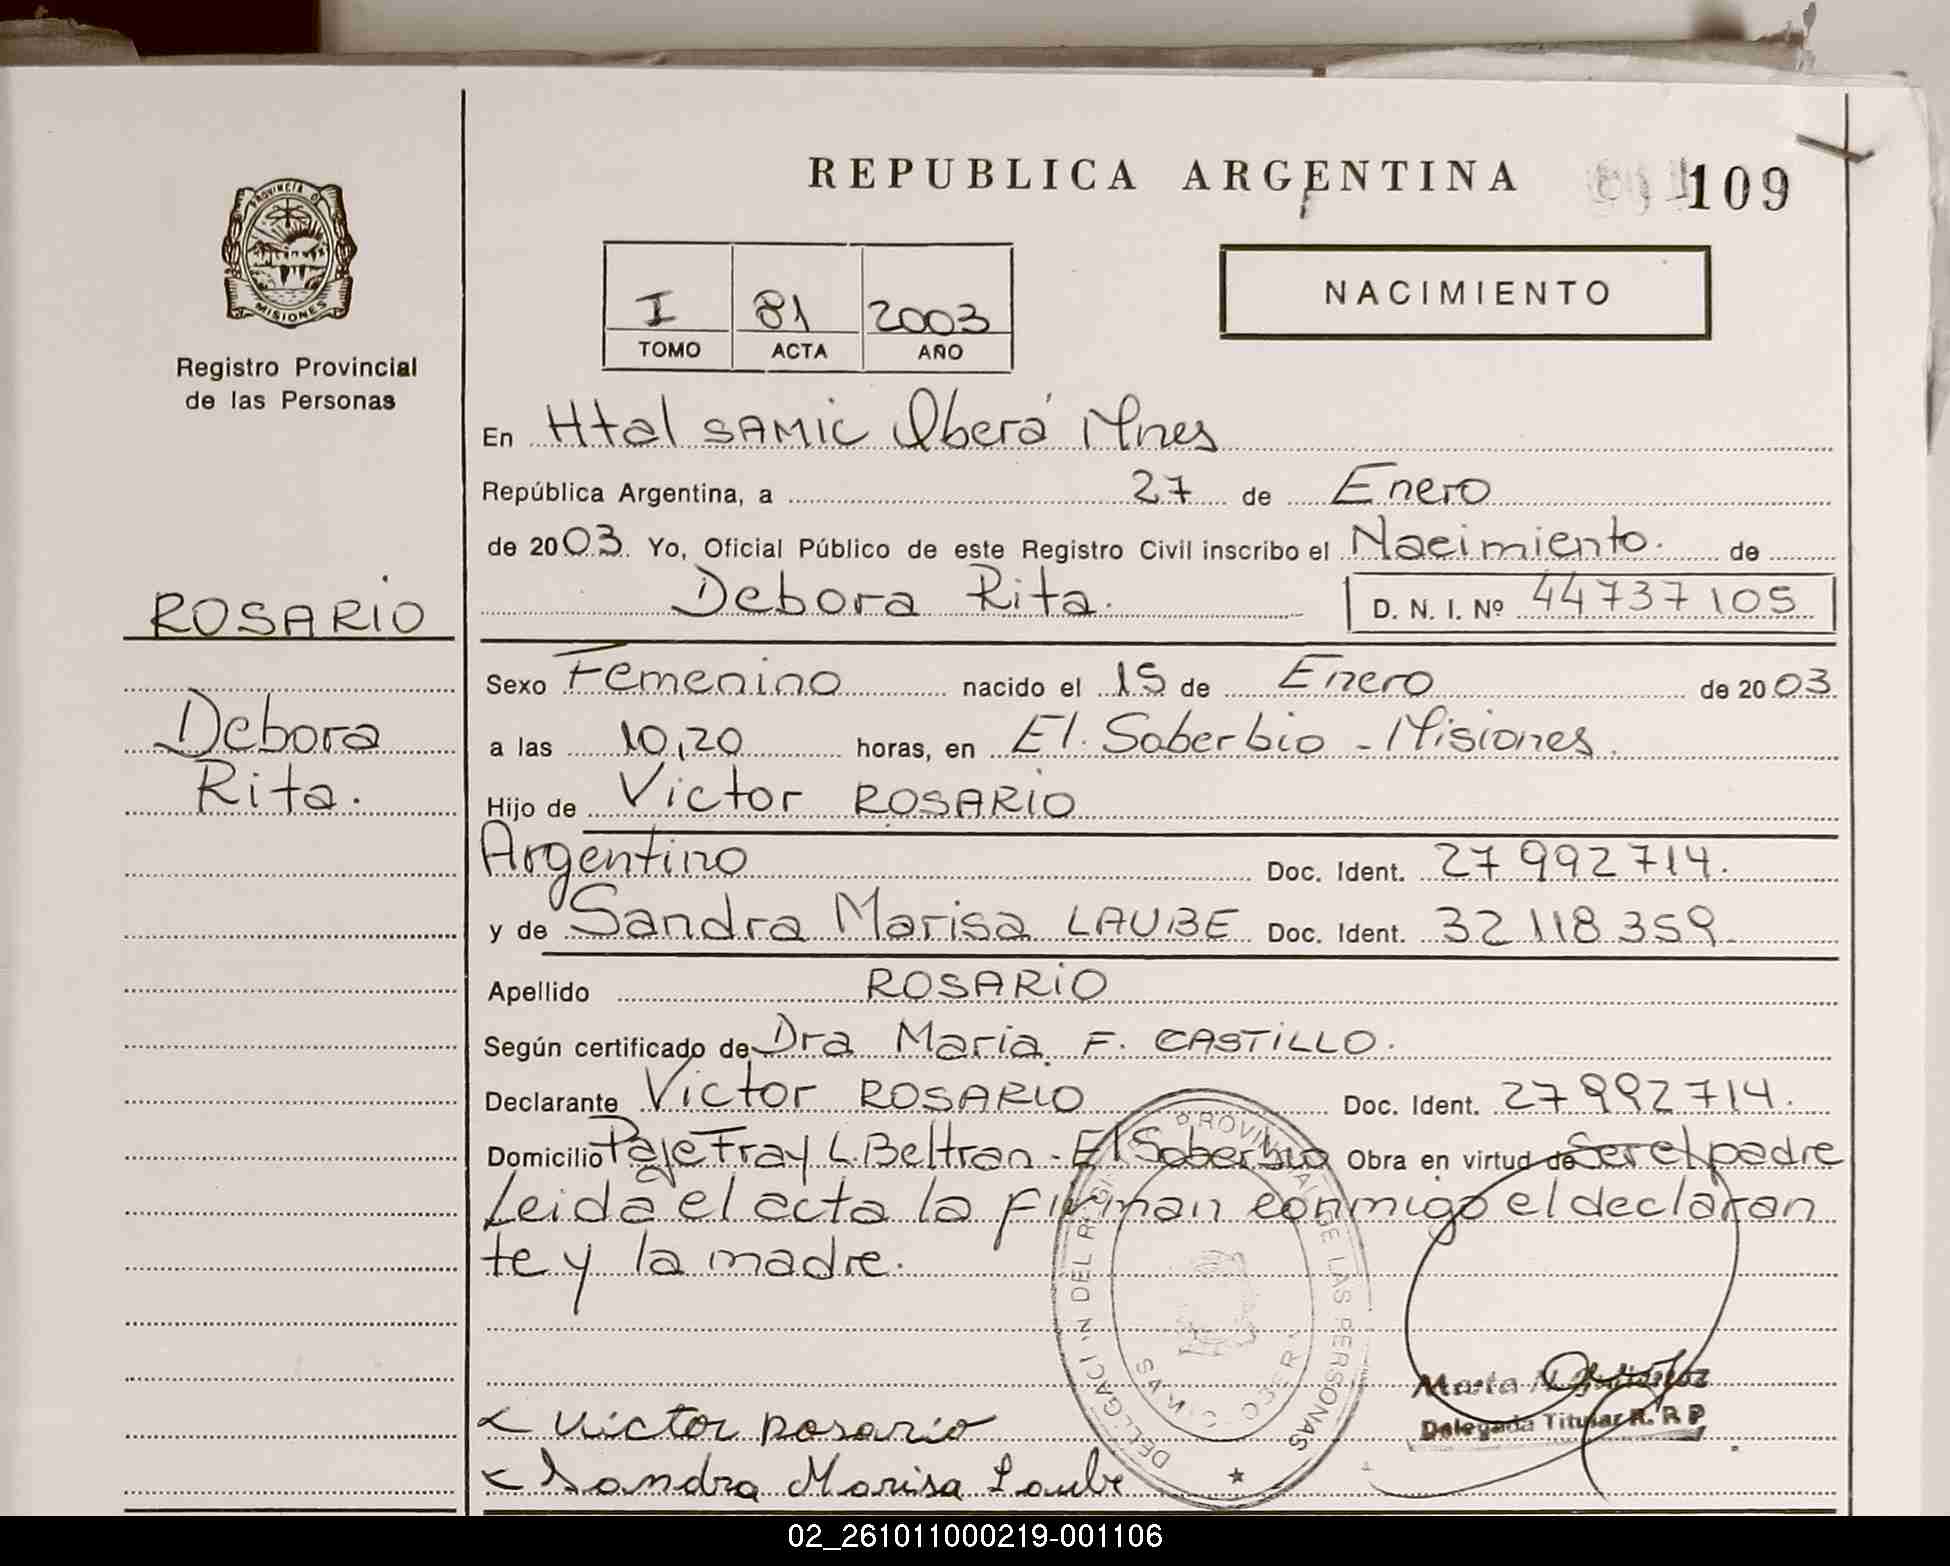 REPUBLICA ARGENTINA
109
PROVINCIA DE MISIONES
Registro Provincial
de las Personas
NACIMIENTO
I 81 2003
TOMO ACTA AÑO
En Htal SAMIC Oberá Mnes
República Argentina, a 27 de Enero
de 2003. Yo, Oficial Público de este Registro Civil inscribo el Nacimiento. de
Debora Rita. D. N. I. Nº 44737105
ROSARIO
Debora
Rita.
Sexo Femenino nacido el 15 de Enero de 2003
a las 10,20 horas, en El Soberbio - Misiones.
Hijo de Victor ROSARIO
Argentino Doc. Ident. 27 992 714.
y de Sandra Marisa LAUBE Doc. Ident. 32 118 359
Apellido ROSARIO
Según certificado de Dra Maria F. CASTILLO.
Declarante Victor ROSARIO Doc. Ident. 27 992 714.
Domicilio Paje Fray L. Beltran - El Soberbio Obra en virtud de Ser el padre
Leida el acta la firman conmigo el declaran
te y la madre.
PROVINCIAL DE LAS PERSONAS
Marta
Delegada Titular R. R. P
Victor Rosario
Sandra Marisa Laube
02_261011000219-001106